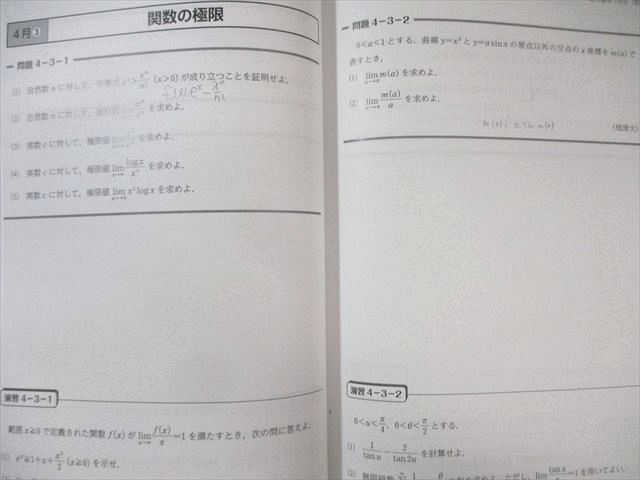 4月③
関数の極限
問題 4-3-1
(1) 自然数 n に対して，不等式 e^x > x^n/n! (x>0) が成り立つことを証明せよ．
f(x)=e^x-x^n/n!
(2) 自然数 n に対して，極限値 を求めよ．
(3) 実数 c に対して，極限値 を求めよ．
(4) 実数 c に対して，極限値 lim log x/x^c を求めよ．
(5) 実数 c に対して，極限値 lim x^c log x を求めよ．
演習 4-3-1
範囲 x≧0 で定義された関数 f(x) が lim f(x)/x =1 を満たすとき，次の問に答えよ．
(1) e^x≧1+x+x^2/2 (x≧0) を示せ．
問題 4-3-2
0<a<1 とする．曲線 y=x^2 と y=a sin x の原点以外の交点の x 座標を m(a) で
表すとき，
(1) lim m(a) を求めよ．
(2) lim m(a)/a を求めよ．
(琉球大)
演習 4-3-2
0<u<π/4，0<θ<π/2 とする．
(1) 1/tan u - 2/tan 2u を計算せよ．
(2) 無限級数 lim tan x/x =1 を用いてよい．